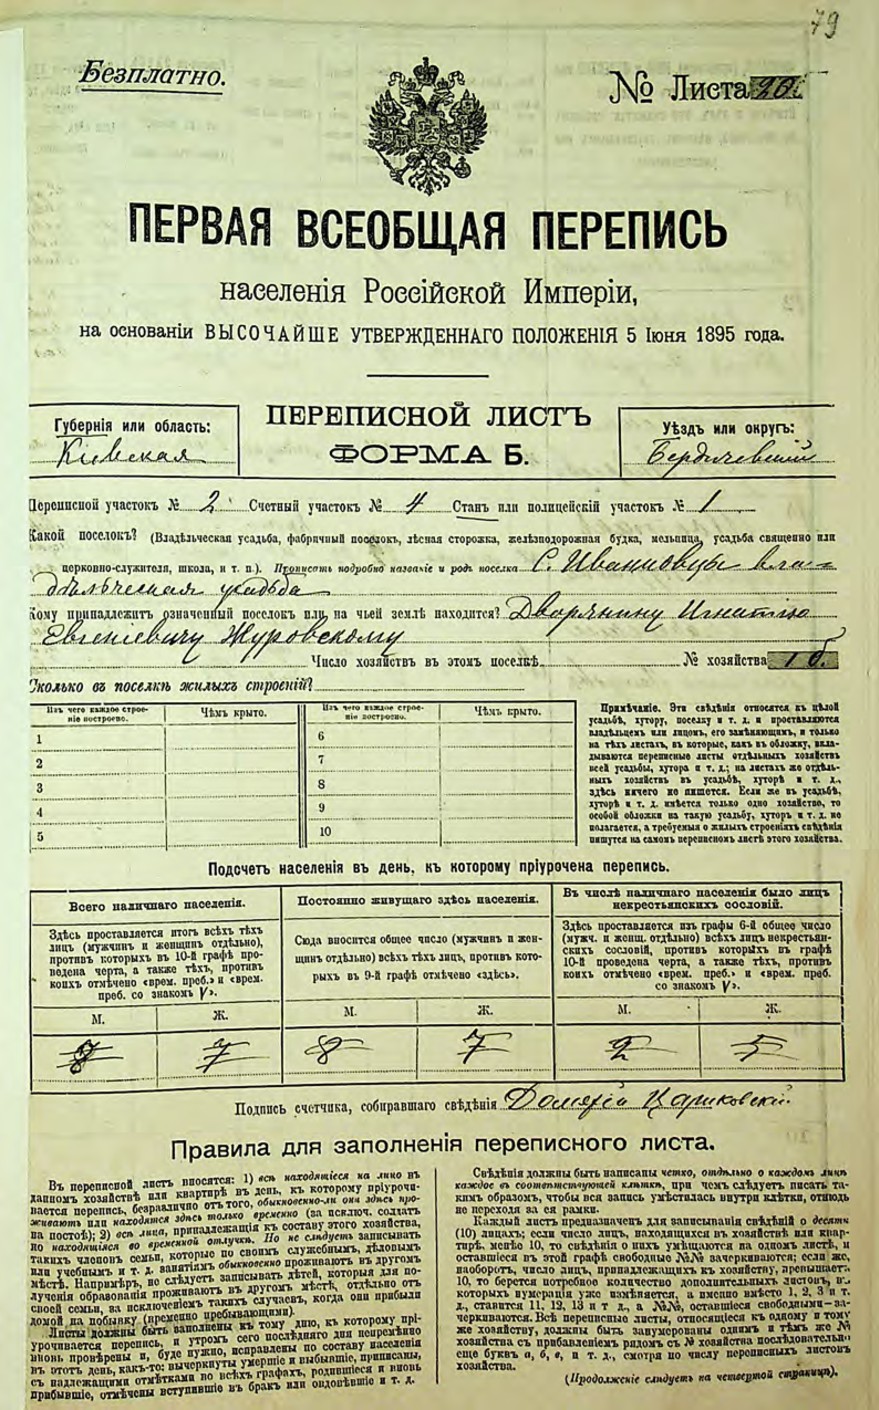 79
Безплатно.
№ Листа 20
ПЕРВАЯ ВСЕОБЩАЯ ПЕРЕПИСЬ
населенія Россійской Имперіи,
на основаніи ВЫСОЧАЙШЕ УТВЕРЖДЕННАГО ПОЛОЖЕНІЯ 5 Іюня 1895 года.
Губернія или область:
Кіевская
ПЕРЕПИСНОЙ ЛИСТЪ
ФОРМА Б.
Уѣздъ или округъ:
Бердичевскій
Переписной участокъ № 2 Счетный участокъ № 4 Станъ или полицейскій участокъ № 1
Какой поселокъ? (Владѣльческая усадьба, фабричный поселокъ, лѣсная сторожка, желѣзнодорожная будка, мельница, усадьба священно или
церковно-служителя, школа, и т. п.). Прописать подробно названіе и родъ поселка С. Ивановцы вла-
дѣльческая усадьба
Кому принадлежитъ означенный поселокъ или на чьей землѣ находится? Дворянину Игнатію
Евгеніевичу Журовскому
Число хозяйствъ въ этомъ поселкѣ № хозяйства 1 б.
Сколько въ поселкѣ жилыхъ строеній?
Изъ чего каждое строе-
ніе построено.
Чѣмъ крыто.
Изъ чего каждое строе-
ніе построено.
Чѣмъ крыто.
1 6
2 7
3 8
4 9
5 10
Примѣчаніе. Эти свѣдѣнія относятся къ цѣлой
усадьбѣ, хутору, поселку и т. д. и проставляются
владѣльцемъ или лицомъ, его замѣняющимъ, и только
на тѣхъ листахъ, въ которые, какъ въ обложку, вкла-
дываются переписные листы отдѣльныхъ хозяйствъ
всей усадьбы, хутора и т. д.; на листахъ же отдѣль-
ныхъ хозяйствъ въ усадьбѣ, хуторѣ и т. д.,
здѣсь ничего не пишется. Если же въ усадьбѣ,
хуторѣ и т. д. имѣется только одно хозяйство, то
особой обложки на такую усадьбу, хуторъ и т. д. не
полагается, а требуемыя о жилыхъ строеніяхъ свѣдѣнія
пишутся на самомъ переписномъ листѣ этого хозяйства.
Подсчетъ населенія въ день, къ которому пріурочена перепись.
Всего наличнаго населенія.
Постоянно живущаго здѣсь населенія.
Въ числѣ наличнаго населенія было лицъ
некрестьянскихъ сословій.
Здѣсь проставляется итогъ всѣхъ тѣхъ
лицъ (мужчинъ и женщинъ отдѣльно),
противъ которыхъ въ 10-й графѣ про-
ведена черта, а также тѣхъ, противъ
коихъ отмѣчено «врем. преб.» и «врем.
преб. со знакомъ V».
Сюда вносится общее число (мужчинъ и жен-
щинъ отдѣльно) всѣхъ тѣхъ лицъ, противъ кото-
рыхъ въ 9-й графѣ отмѣчено «здѣсь».
Здѣсь проставляется изъ графы 6-й общее число
(мужч. и женщ. отдѣльно) всѣхъ лицъ некрестьян-
скихъ сословій, противъ которыхъ въ графѣ
10-й проведена черта, а также тѣхъ, противъ
коихъ отмѣчено «врем. преб.» и «врем. преб.
со знакомъ V».
М. Ж. М. Ж. М. Ж.
8 7 8 7 2 5
Подпись счетчика, собиравшаго свѣдѣнія
Правила для заполненія переписного листа.
Въ переписной листъ вносятся: 1) всѣ находящіеся на лицо въ
данномъ хозяйствѣ или квартирѣ въ день, къ которому пріурочи-
вается перепись, безразлично отъ того, обыкновенно-ли они здѣсь про-
живаютъ или находятся здѣсь только временно (за исключ. солдатъ
на постоѣ); 2) всѣ лица, принадлежащія къ составу этого хозяйства,
но находящіяся во временной отлучкѣ. Но не слѣдуетъ записывать
такихъ членовъ семьи, которые по своимъ служебнымъ, дѣловымъ
или учебнымъ и т. д. занятіямъ обыкновенно проживаютъ въ другомъ
мѣстѣ. Напримѣръ, не слѣдуетъ записывать дѣтей, которыя для по-
лученія образованія проживаютъ въ другомъ мѣстѣ, отдѣльно отъ
своей семьи, за исключеніемъ такихъ случаевъ, когда они прибыли
домой на побывку (временно пребывающими).
Листы должны быть заполнены къ тому дню, къ которому прі-
урочивается перепись, и утромъ сего послѣдняго дня непремѣнно
вновь провѣрены и, буде нужно, исправлены по составу населенія
въ этотъ день, какъ-то: вычеркнуты умершіе и выбывшіе, приписаны,
съ надлежащими отмѣтками по всѣхъ графахъ, родившіеся и вновь
прибывшіе, отмѣчены вступившіе въ бракъ или овдовѣвшіе и т. д.
Свѣдѣнія должны быть написаны четко, отдѣльно о каждомъ лицѣ
каждое въ соотвѣтствующей клѣткѣ, при чемъ слѣдуетъ писать та-
кимъ образомъ, чтобы вся запись умѣстилась внутри клѣтки, отнюдь
не переходя за ея рамки.
Каждый листъ предназначенъ для записыванія свѣдѣній о десяти
(10) лицахъ; если число лицъ, находящихся въ хозяйствѣ или квар-
тирѣ, менѣе 10, то свѣдѣнія о нихъ умѣщаются на одномъ листѣ, и
оставшіеся въ этой графѣ свободные №№ зачеркиваются; если же,
наоборотъ, число лицъ, принадлежащихъ къ хозяйству, превышаетъ
10, то берется потребное количество дополнительныхъ листовъ, въ
которыхъ нумерація уже измѣняется, а именно вмѣсто 1, 2, 3 и т.
д., ставится 11, 12, 13 и т д., а №№, оставшіеся свободными—за-
черкиваются. Всѣ переписные листы, относящіеся къ одному и тому
же хозяйству, должны быть занумерованы однимъ и тѣмъ же №
хозяйства съ прибавленіемъ рядомъ съ № хозяйства послѣдовательно
еще буквъ а, б, в, и т. д., смотря по числу переписныхъ листовъ
хозяйства.
(Продолженіе слѣдуетъ на четвертой страницѣ).